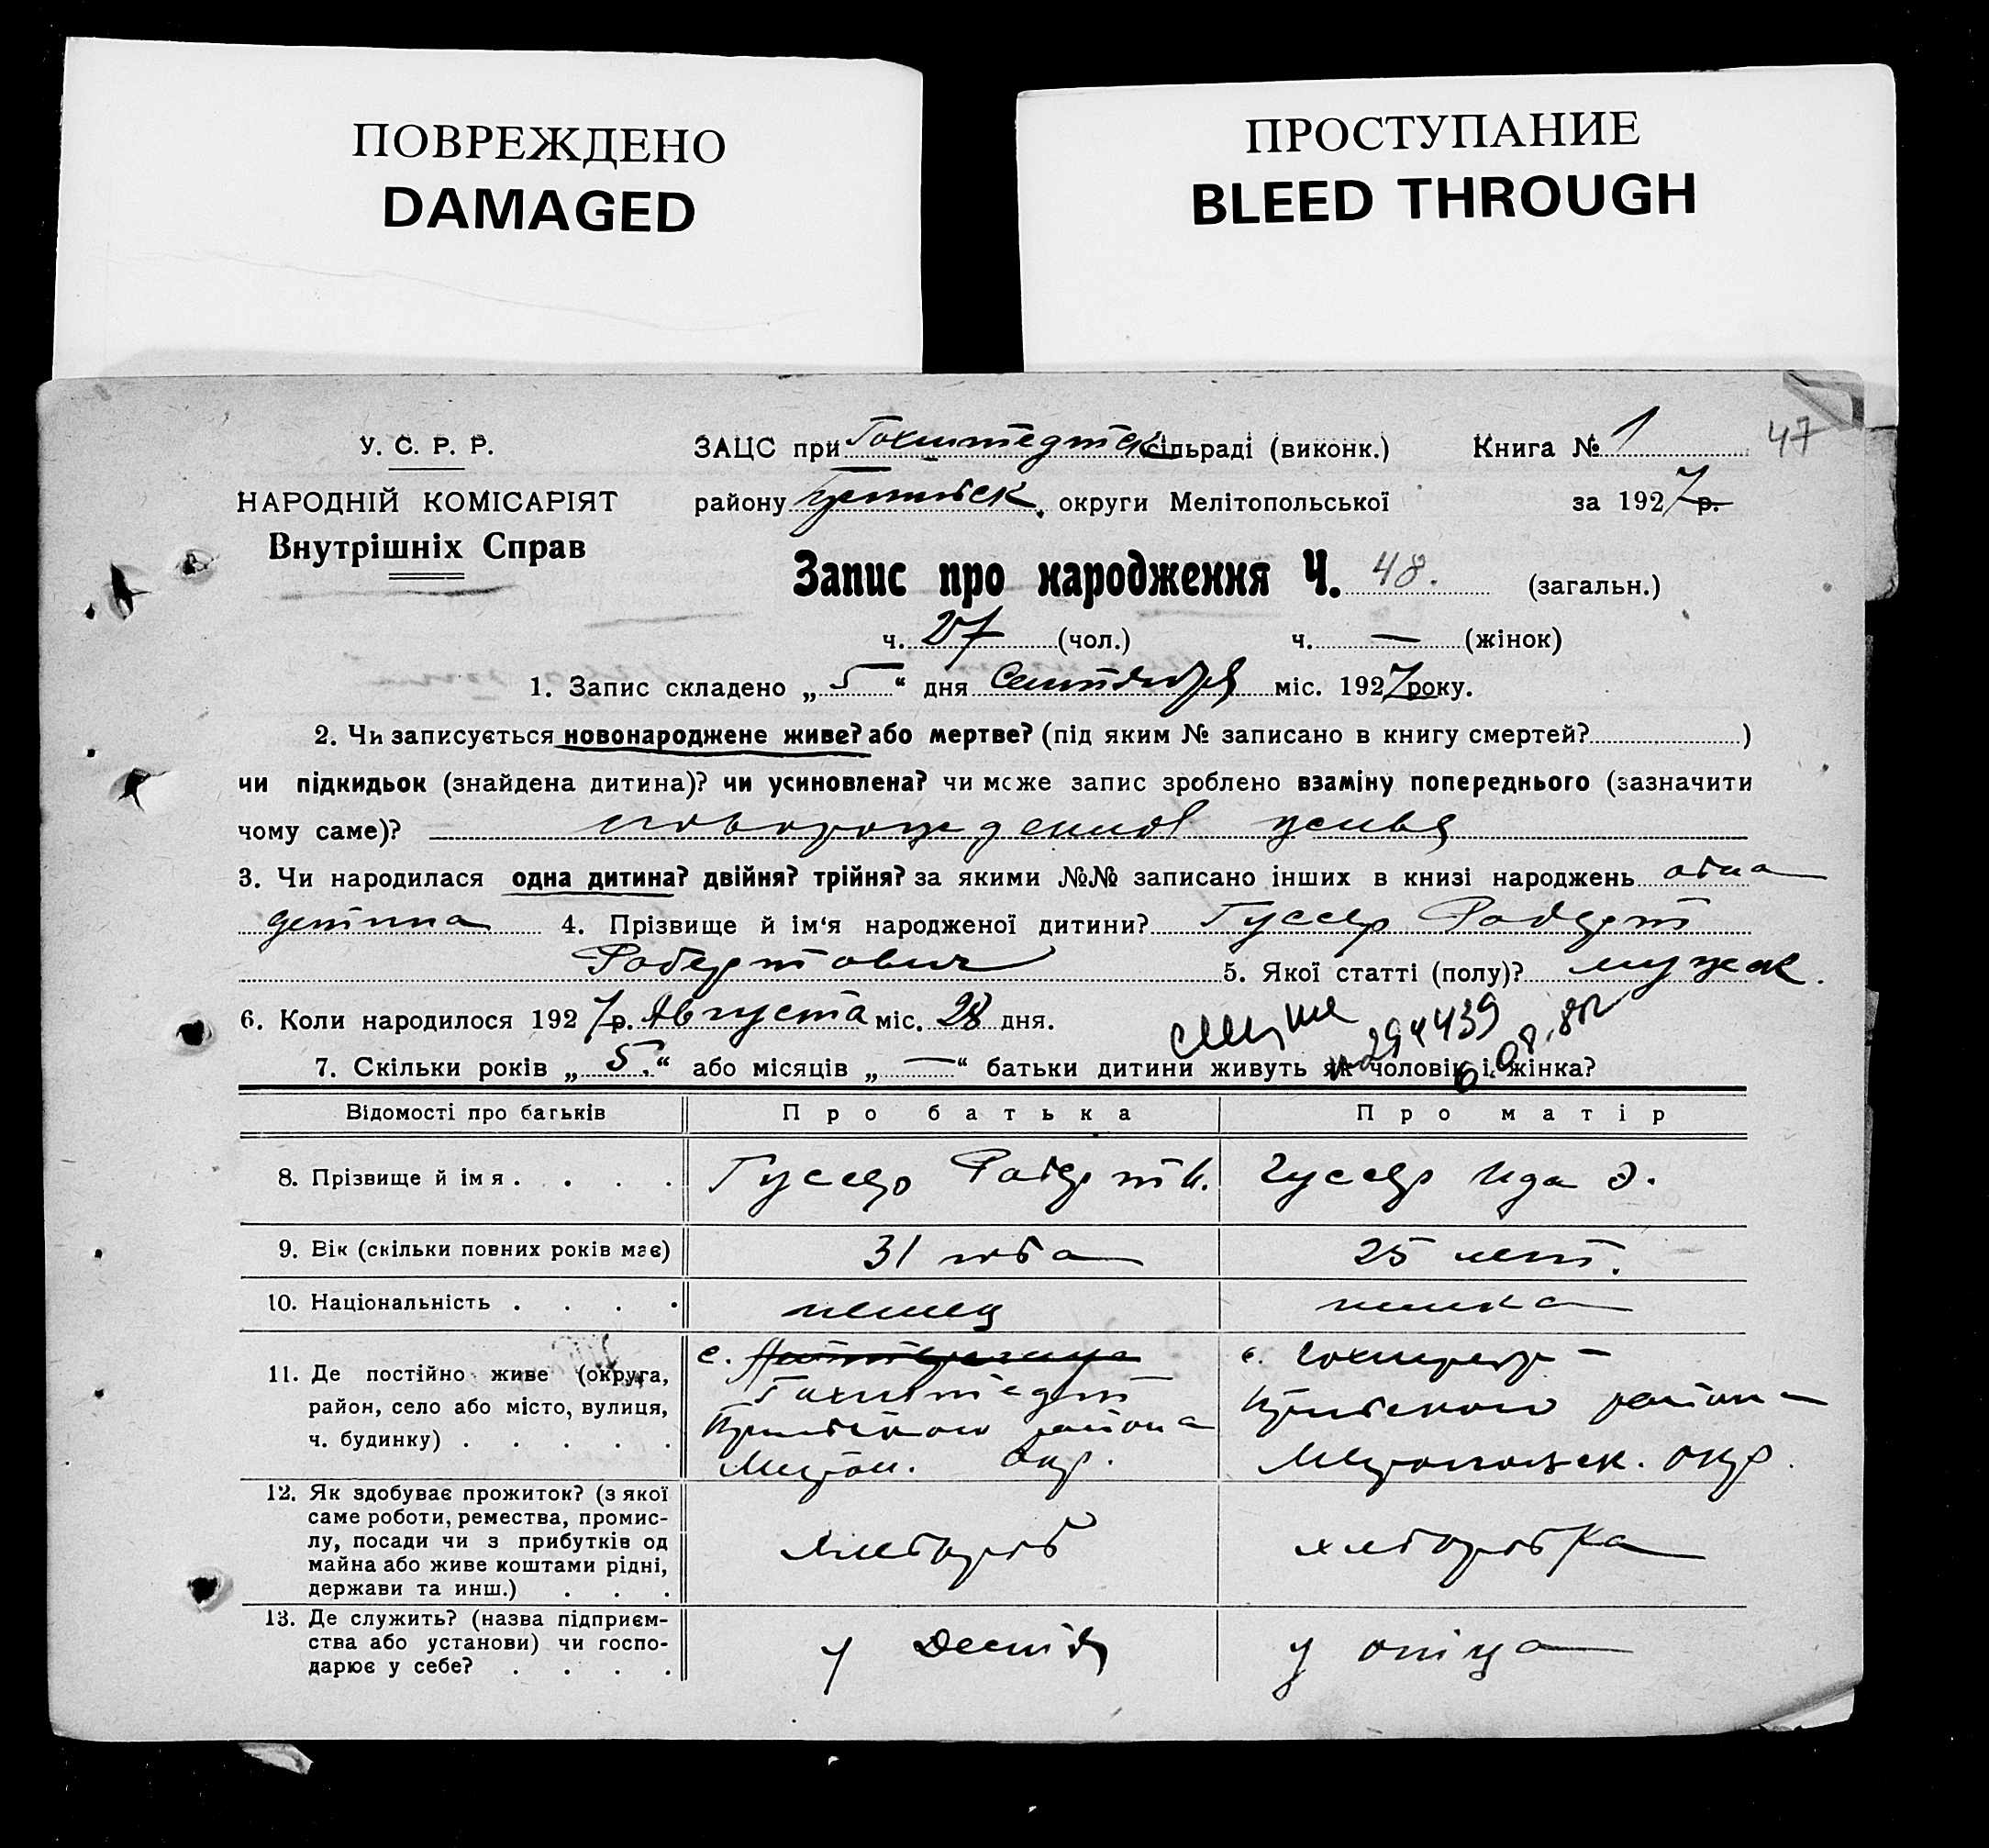 ПОВРЕЖДЕНО
DAMAGED
ПРОСТУПАНИЕ
BLEED THROUGH
47
У. С. Р. Р.
НАРОДНІЙ КОМІСАРІЯТ
Внутрішніх Справ
ЗАЦС при Гохштедтск сільраді (виконк.) Книга № 1
району округи Мелітопольської за 1927 р.
Запис про народження Ч. 48. (загальн.)
ч. 27 (чол.) ч. — (жінок)
1. Запис складено „ 5 “ дня Сентября міс. 1927 року.
2. Чи записується новонароджене живе? або мертве? (під яким № записано в книгу смертей? )
чи підкидьок (знайдена дитина)? чи усиновлена? чи може запис зроблено взаміну попереднього (зазначити
чому саме)? новорожденная живая
3. Чи народилася одна дитина? двійня? трійня? за якими №№ записано інших в книзі народжень одна
детина 4. Прізвище й ім‘я народженої дитини? Гуссер Роберт
Робертович 5. Якої статті (полу)? мужск.
6. Коли народилося 1927 р. Августа міс. 28 дня.
7. Скільки років „ 5. “ або місяців „ — “ батьки дитини живуть як чоловік і жінка?
№ 294439
Відомості про батьків Про батька Про матір
8. Прізвище й імя . . . . Гуссер Роберт И. Гуссер Ида Э.
9. Вік (скільки повних років має) 31 года 25 лет.
10. Національність . . . . немец немка
11. Де постійно живе (округа,
район, село або місто, вулиця,
ч. будинку) . . . . .
с. Гохштедт
района
Мелітоп. Окр.
с.
района
Мелитопольск. окр.
12. Як здобуває прожиток? (з якої
саме роботи, ремества, промис-
лу, посади чи з прибутків од
майна або живе коштами рідні,
держави та инш.) . . .
хлебороб хлеборобка
13. Де служить? (назва підприєм-
ства або установи) чи госпо-
дарює у себе? . . . .
у у отца